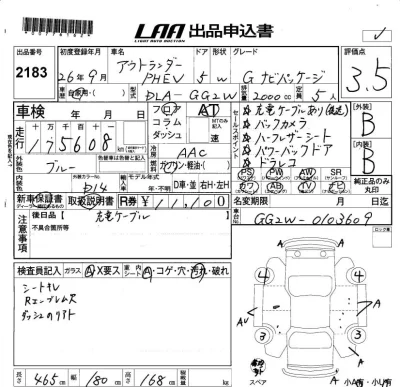 LAA 出品申込書
LIGHT AUTO AUCTION
出品番号
2183
初度登録年月
26年9月
車名
アウトランダー
PHEV
ドア 形状
5 W
グレード
G ナビパッケージ
評価点
3.5
車歴
自家用
型式
DLA-GG2W
排気量
2000cc
定員
5人
車検
走行
十万 万 千 百 十
175608
フロア
コラム
ダッシュ
AT
MTのみ記入
速
セールスポイント
充電ケーブルあり(後送)
バックカメラ
ハーフレザーシート
パワーバックドア
ドラレコ
【外装】
B
【内装】
B
外装色
ブルー
色替車は色替と記入
冷房
AAC
燃料
ガソリン・軽油
外装カラーNo.
D14
輸入車
モデル年式
年・不明
D車・並 右H・左H
PS PW AW SR
AB TV
純正品のみ
丸印
新車保証書
取扱説明書
R券
¥11,100
名変期限
月 日迄
注意事項
後日品
充電ケーブル
不具合箇所等
車台No.
GG2W-0103609
検査員記入
ガラス A X要ス
内 シート A・コゲ・穴・汚れ・破れ
シートキレ
Rエンブレム欠
A
4 4
3 3
スペア
小A有・小U有
長さ 465cm 幅 180cm 高さ 168cm 積載量 kg